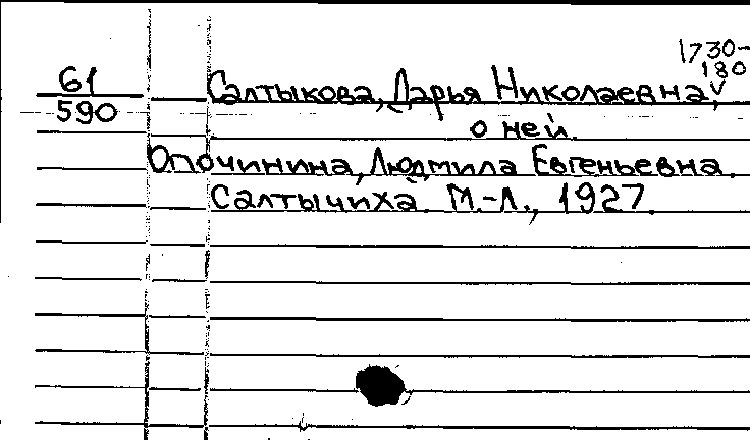 1730-
180
61
590
Салтыкова, Дарья Николаевна,
о ней.
Опочинина, Людмила Евгеньевна.
Салтычиха. М.-Л., 1927.